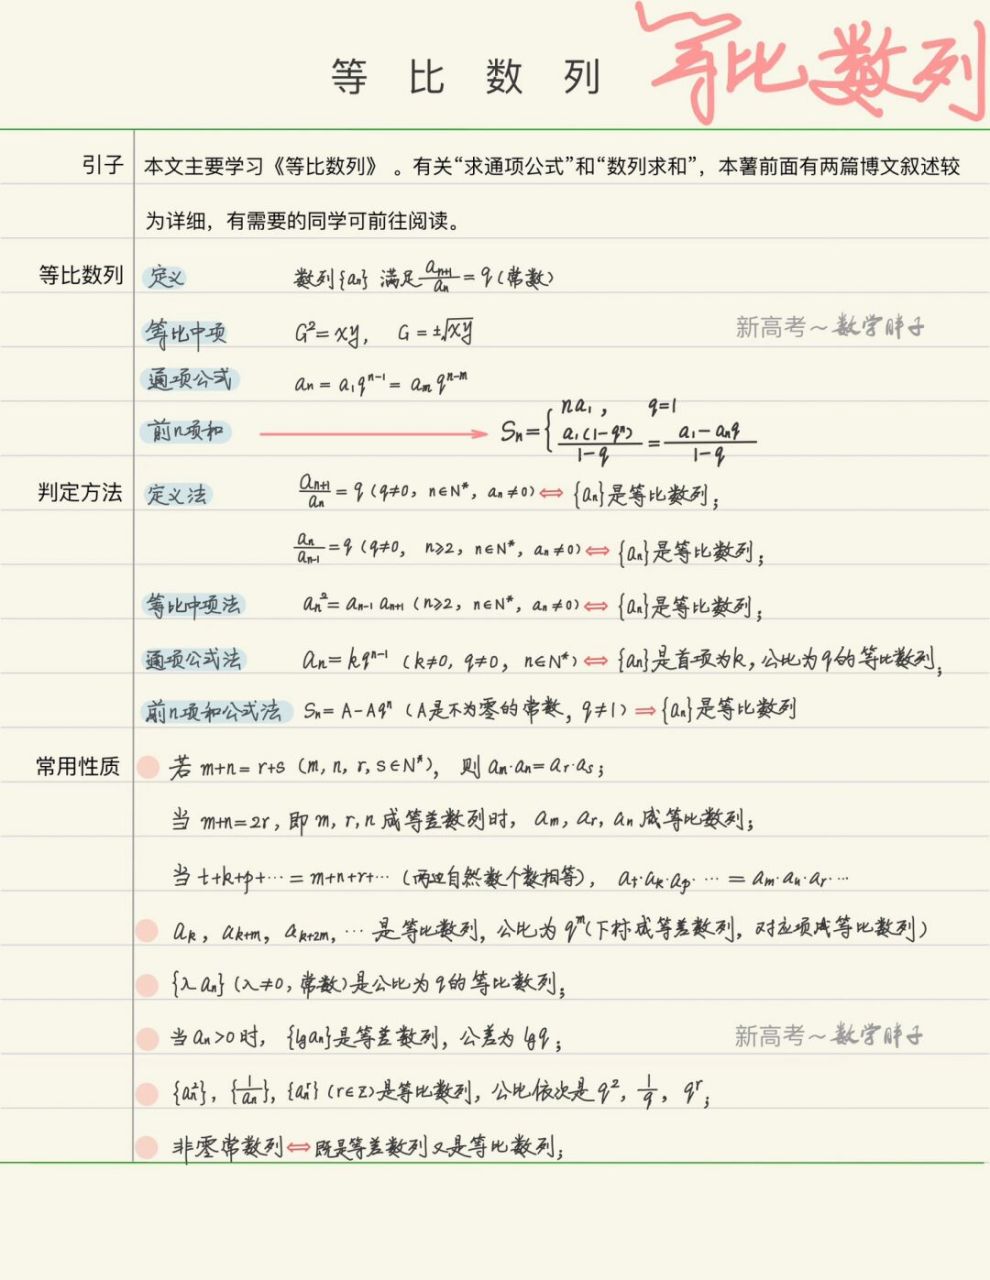 等比数列 等比数列
引子 本文主要学习《等比数列》。有关“求通项公式”和“数列求和”，本薯前面有两篇博文叙述较
为详细，有需要的同学可前往阅读。
等比数列 定义 数列{aₙ} 满足 aₙ₊₁/aₙ = q (常数)
等比中项 G²=xy, G=±√xy 新高考～数学胖子
通项公式 aₙ = a₁qⁿ⁻¹ = aₘqⁿ⁻ᵐ
前n项和 → Sₙ = { na₁, q=1
a₁(1-qⁿ)/(1-q) = (a₁-aₙq)/(1-q)
判定方法 定义法 aₙ₊₁/aₙ = q (q≠0, n∈N*, aₙ≠0) ⇔ {aₙ}是等比数列;
aₙ/aₙ₋₁ = q (q≠0, n≥2, n∈N*, aₙ≠0) ⇔ {aₙ}是等比数列;
等比中项法 aₙ² = aₙ₋₁aₙ₊₁ (n≥2, n∈N*, aₙ≠0) ⇔ {aₙ}是等比数列;
通项公式法 aₙ = kqⁿ⁻¹ (k≠0, q≠0, n∈N*) ⇔ {aₙ}是首项为k, 公比为q的等比数列;
前n项和公式法 Sₙ = A-Aqⁿ (A是不为零的常数, q≠1) ⇒ {aₙ}是等比数列
常用性质 若 m+n=r+s (m,n,r,s∈N*), 则 aₘ·aₙ=aᵣ·aₛ;
当 m+n=2r, 即 m,r,n 成等差数列时, aₘ, aᵣ, aₙ 成等比数列;
当 t+k+p+⋯=m+n+r+⋯ (两边自然数个数相等), aₜ·aₖ·aₚ·⋯=aₘ·aₙ·aᵣ·⋯
aₖ, aₖ₊ₘ, aₖ₊₂ₘ, ⋯ 是等比数列, 公比为 qᵐ (下标成等差数列, 对应项成等比数列)
{λaₙ} (λ≠0, 常数) 是公比为q的等比数列;
当 aₙ>0 时, {lgaₙ}是等差数列, 公差为 lgq; 新高考～数学胖子
{aₙ²}, {1/aₙ}, {aₙʳ} (r∈Z) 是等比数列, 公比依次是 q², 1/q, qʳ;
非零常数列 ⇔ 既是等差数列又是等比数列;